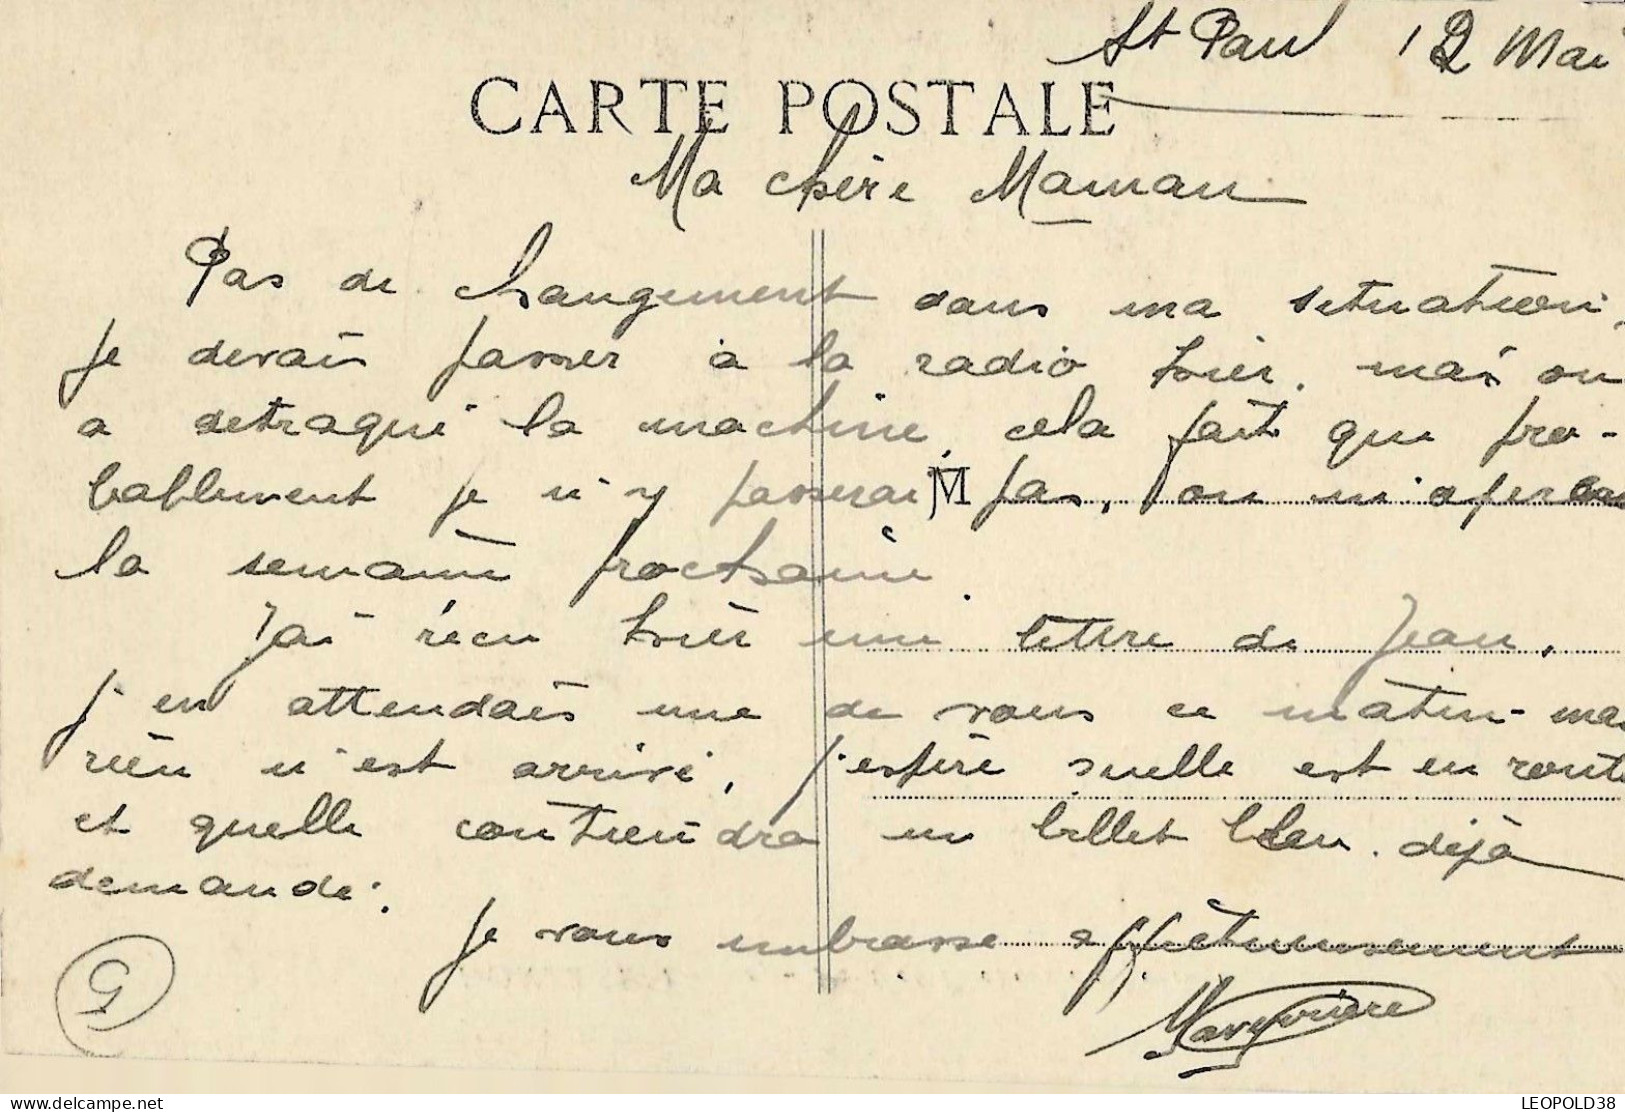 St Paul 12 Mai
CARTE POSTALE
Ma chère Maman
Pas de changement dans ma situation,
je devais passer à la radio hier. mais on
a detraqué la machine, cela fait que pro-
bablement je n'y passerai pas, on m'operera
la semaine prochaine.
J'ai récu hier une lettre de Jean,
j'en attendais une de vous ce matin - mais
rien n'est arrivé, j'espère quelle est en route
et quelle contiendra un billet bleu. déjà
demandé.
je vous embrasse affectueusement
G
LEOPOLD38